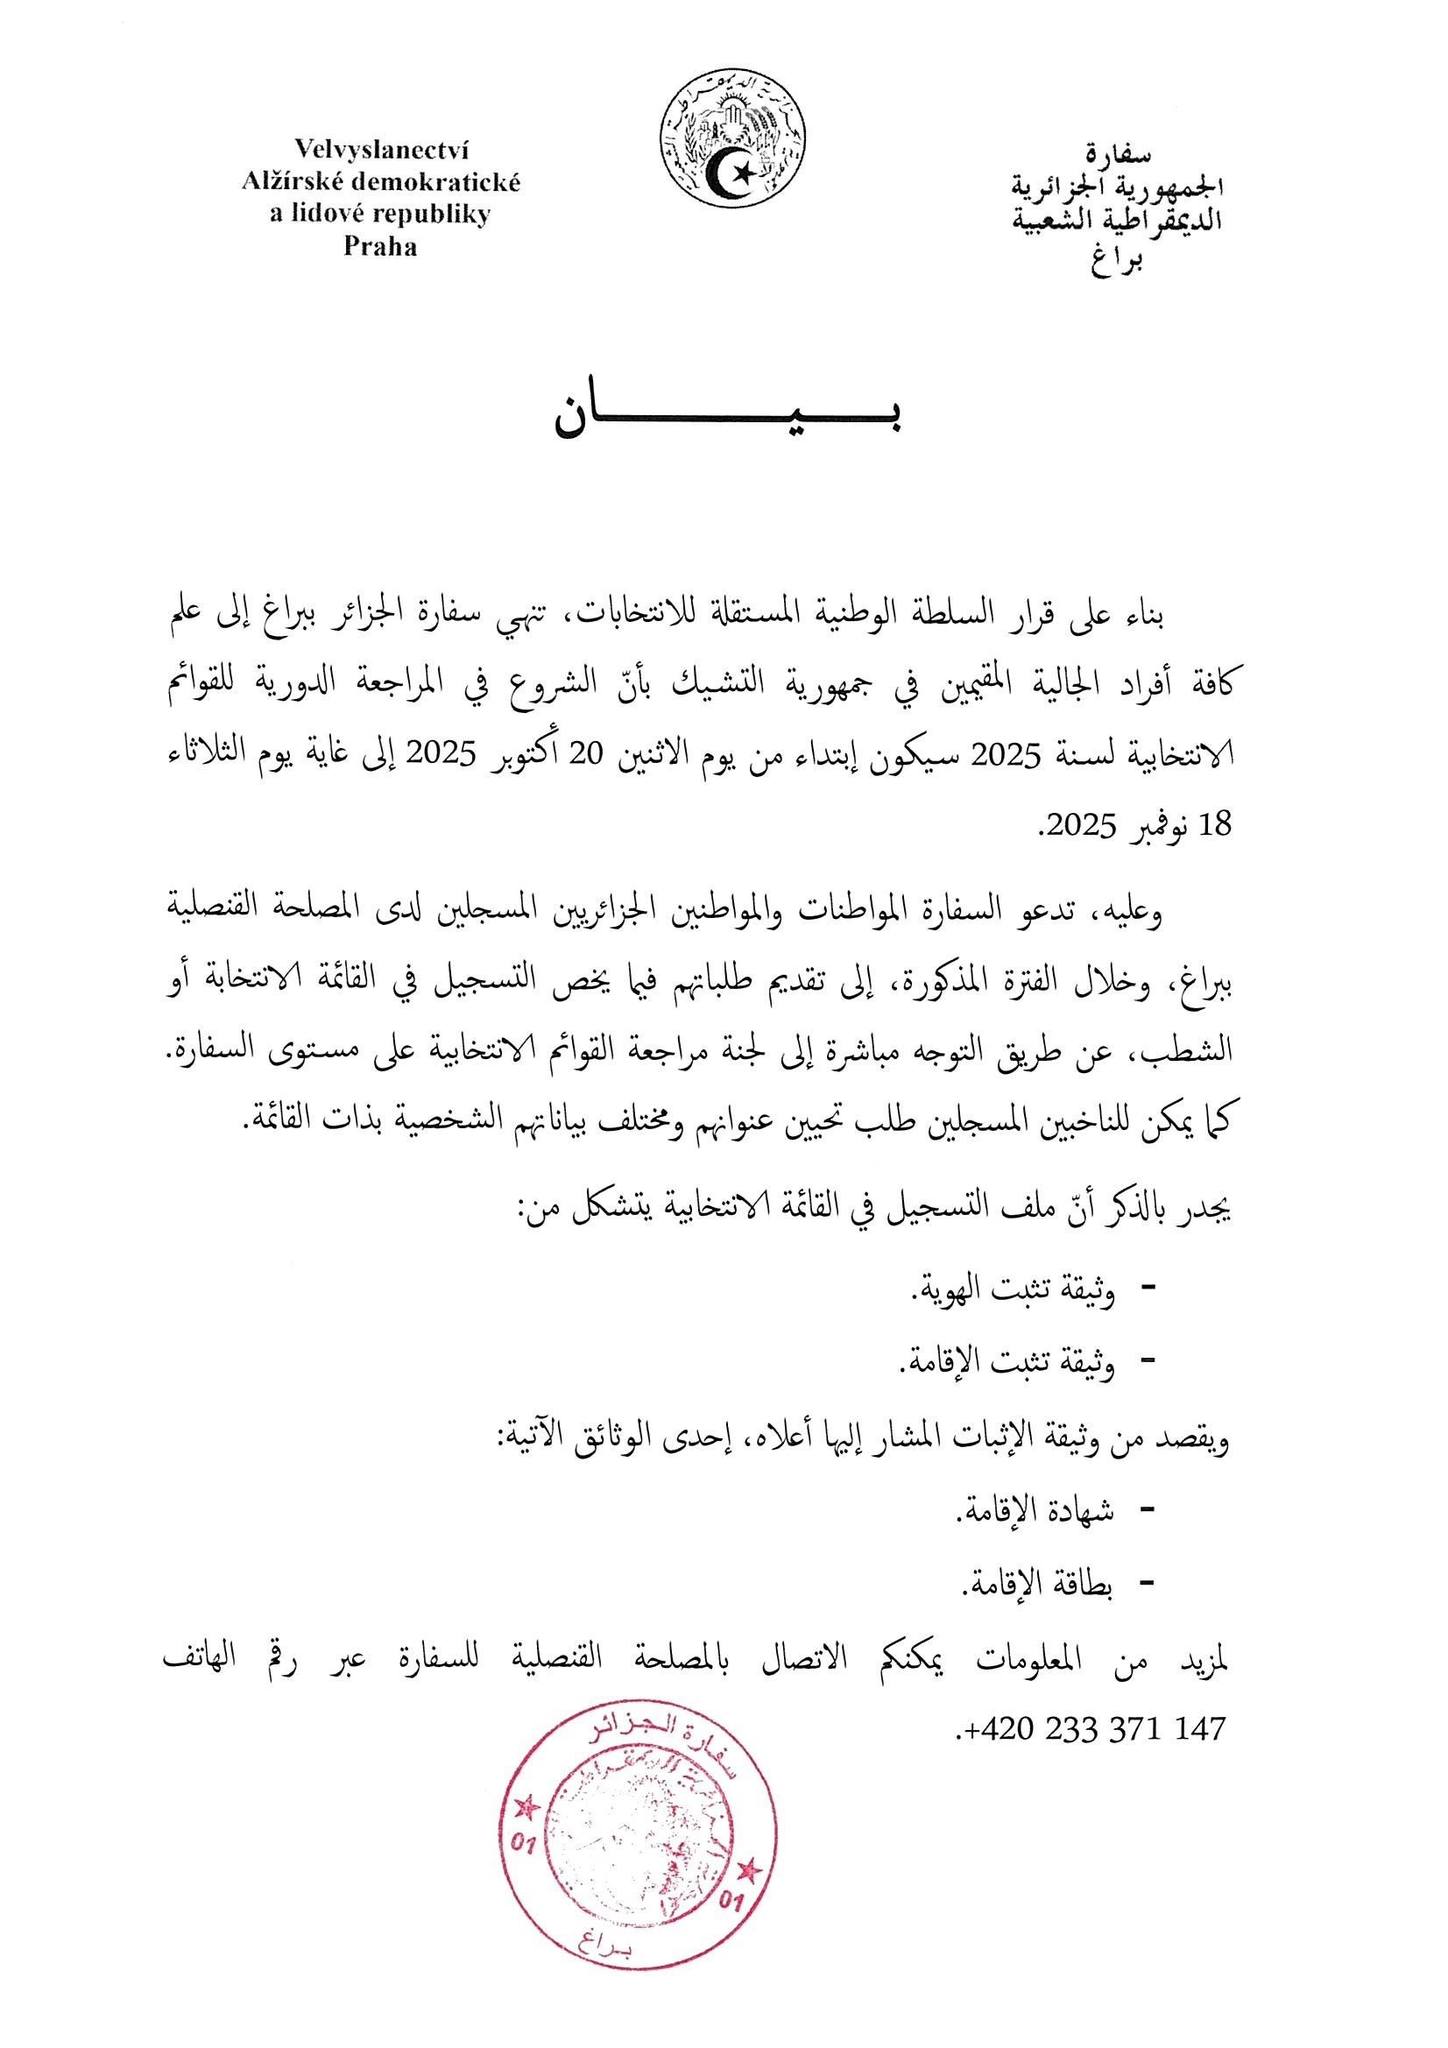 Velvyslanectví
Alžírské demokratické
a lidové republiky
Praha
سفارة
الجمهورية الجزائرية
الديمقراطية الشعبية
براغ
بـــيـــــــــان
بناء على قرار السلطة الوطنية المستقلة للانتخابات، تنهي سفارة الجزائر ببراغ إلى علم
كافة أفراد الجالية المقيمين في جمهورية التشيك بأنّ الشروع في المراجعة الدورية للقوائم
الانتخابية لسنة 2025 سيكون إبتداء من يوم الاثنين 20 أكتوبر 2025 إلى غاية يوم الثلاثاء
18 نوفمبر 2025.
وعليه، تدعو السفارة المواطنات والمواطنين الجزائريين المسجلين لدى المصلحة القنصلية
ببراغ، وخلال الفترة المذكورة، إلى تقديم طلباتهم فيما يخص التسجيل في القائمة الانتخابة أو
الشطب، عن طريق التوجه مباشرة إلى لجنة مراجعة القوائم الانتخابية على مستوى السفارة.
كما يمكن للناخبين المسجلين طلب تحيين عنوانهم ومختلف بياناتهم الشخصية بذات القائمة.
يجدر بالذكر أنّ ملف التسجيل في القائمة الانتخابية يتشكل من:
- وثيقة تثبت الهوية.
- وثيقة تثبت الإقامة.
ويقصد من وثيقة الإثبات المشار إليها أعلاه، إحدى الوثائق الآتية:
- شهادة الإقامة.
- بطاقة الإقامة.
لمزيد من المعلومات يمكنكم الاتصال بالمصلحة القنصلية للسفارة عبر رقم الهاتف
+420 233 371 147.
سفارة الجزائر
01
01
براغ